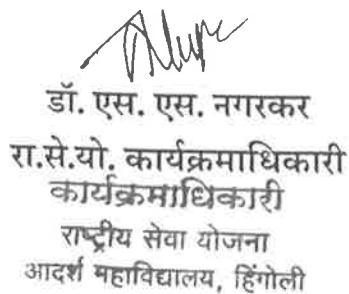 डॉ. एस. एस. नगरकर
रा.से.यो. कार्यक्रमाधिकारी
कार्यक्रमाधिकारी
राष्ट्रीय सेवा योजना
आदर्श महाविद्यालय, हिंगोली